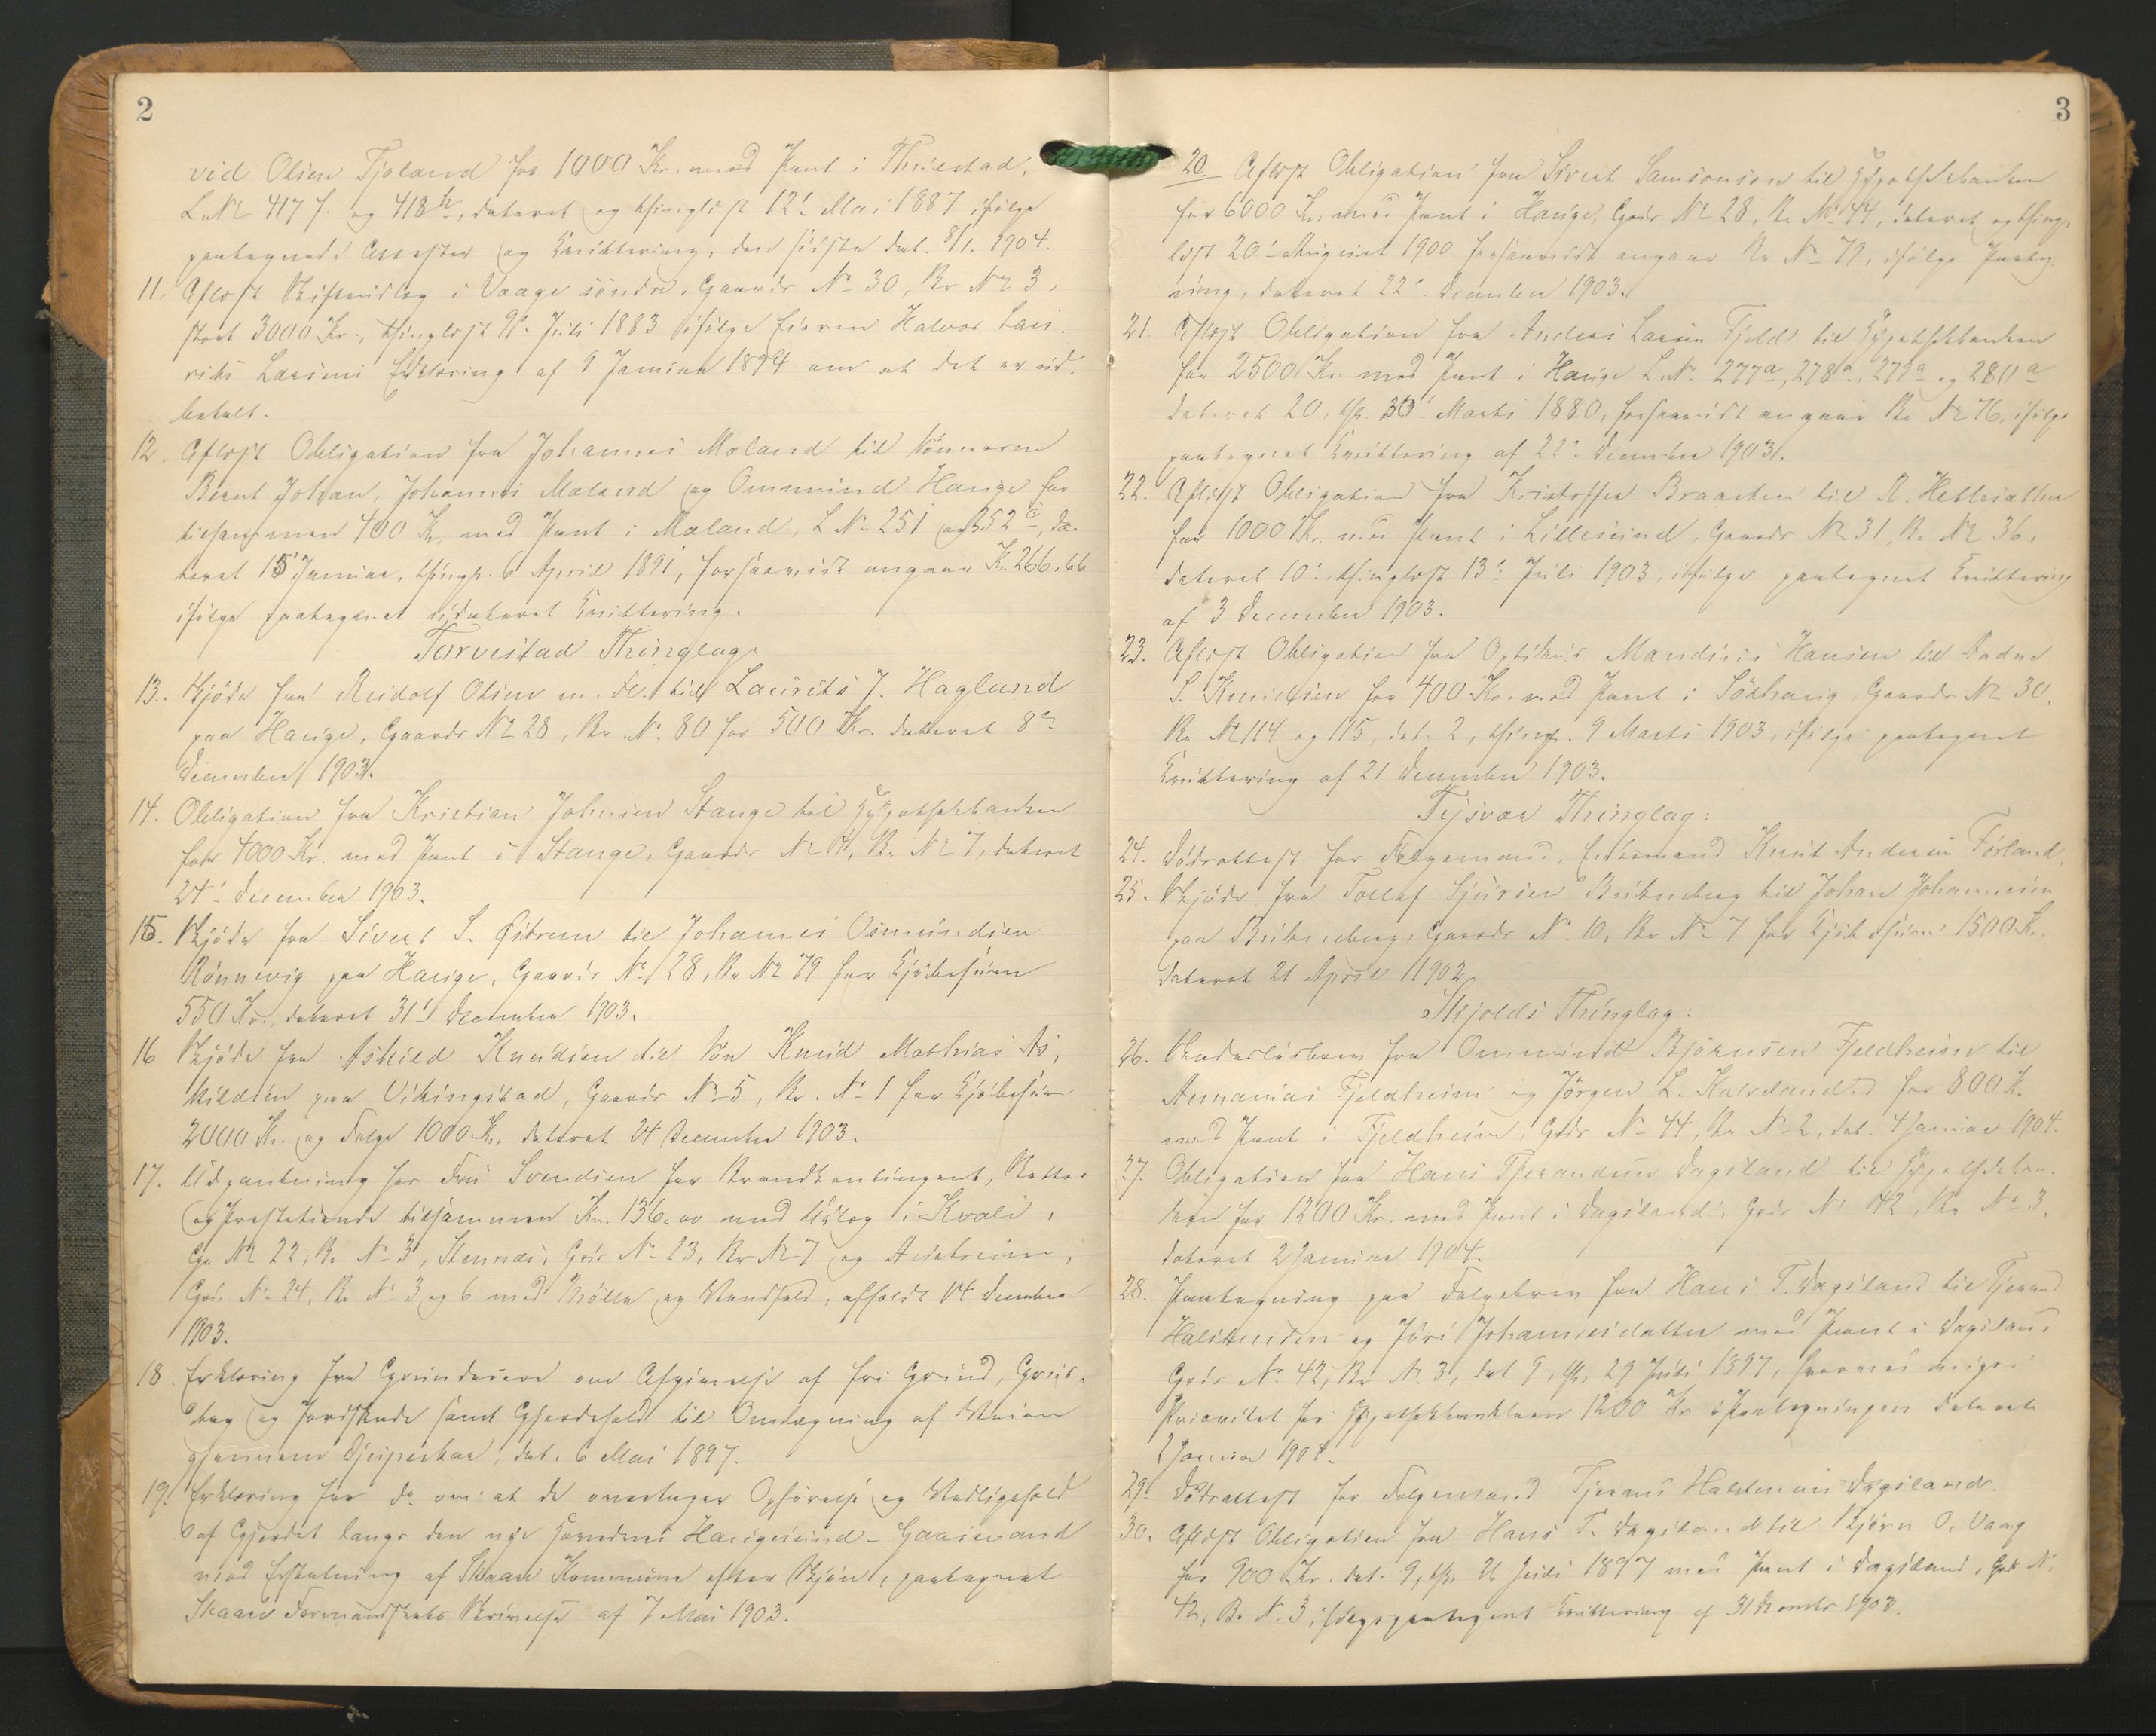 2
vid Olsen Tjoland for 1000 Kr. med Pant i Thuestad,
L. No 417 f. og 418 b, dateret og thinglæst 12te Mai 1887 ifølge
paategnede Attester og Kvittering, den sidste dat. 8/1. 1904.
11. Aflyst Skifteudlæg i Vaage søndre, Gaards No 30, Br No 3,
stort 3000 Kr., thinglæst Juli 1883 ifølge Eieren Halvor Lau-
rits Larsens Erklæring af 9 Januar 1894 om at det er ud-
betalt.
12. Aflyst Obligation fra Johannes Mæland til Sønnerne
Bernt Johan, Johannes Mæland og Ommund Hauge for
tilsammen 400 Kr. med Pant i Mæland, L No 251 og 252 c, da-
teret 15 Januar, thingl. 6 April 1891, forsaavidt angaar Kr. 266.66
ifølge paategnet udateret Kvittering.
Torvestad Thinglag:
13. Skjøde fra Rudolf Olsen m. fl. til Laurits J. Haglund
paa Hauge, Gaards No 28, Br. No. 80 for 500 Kr. dateret 8de
December 1903.
14. Obligation fra Kristian Johnsen Stange til Hypothekbanken
for 4000 Kr. med Pant i Stange, Gaards No 4, Br. No 7, dateret
24' December 1903.
15. Skjøde fra Sivert S. Østrem til Johannes Osmundsen
Rönnevig paa Hauge, Gaards No 28, Br No 79 for Kjøbesum
550 Kr., dateret 31' December 1903.
16 Skjøde fra Askild Knudsen til Søn Knud Mathias As-
kildsen paa Vikingstad, Gaards No 5, Br. No 1 for Kjøbesum
2000 Kr. og Folge 1000 Kr. dateret 24 December 1903.
17. Udpantning hos Fru Svendsen for Brandkontingent, Skatter
og Præstetiende tilsammen Kr. 136. med Udlæg i Kvale,
Gr No 22, Br No 3, Stennes, Grds No 23, Br No 7 og
Grds. No 24, Br No 3 og 6 med Mølle og Vandfald, afholdt 14 December
1903.
18. Erklæring fra Grundeiere om Afgivelse af fri Grund, Grus-
tag og Jordskade samt Gjerdehold til Omlægning af Veien
gjennem Djupeskar, dat. 6 Mai 1897.
19. Erklæring fra do om at de overtager Opførelse og Vedligehold
af Gjerdet langs den nye Haugesund - Gaasevand
mod Erstatning af Skaare Kommune efter Skjøn, paategnet
Skaare Formandskabs Skrivelse af 7 Mai 1903.
3
20. Aflyst Obligation fra Sivert Samsonsen til Hypothekbanken
for 6000 Kr. med Pant i Hauge, Grds No 28, Br No 44, dateret og thing-
læst 20' August 1900 forsaavidt angaar Br No 79, ifølge Paateg-
ning, dateret 22' December 1903.
21. Aflyst Obligation fra Andreas Larsen Fjeld til Hypothekbanken
for 2500 Kr. med Pant i Hauge L. No. 277a, 278a, 279a og 280a
dateret 20, thl. 30' Marts 1880, forsaavidt angaar Br No 76, ifølge
paategnet Kvittering af 22' December 1903.
22. Aflyst Obligation fra Kristoffer Braaten til R. Hellesether
for 1000 Kr. med Pant i Lillesund, Gaards No 31, Br. No 36,
dateret 10', thinglæst 13' Juli 1903, ifølge paategnet Kvittering
af 3 December 1903.
23. Aflyst Obligation fra Optikus Mandius Hansen til
S. Knudsen for 400 Kr. med Pant i Sörhaug, Gaards No 30,
Br No 114 og 115, dat. 2, thingl. 9 Marts 1903, ifølge paategnet
Kvittering af 21 December 1903.
Tysvær Thinglag:
24. Dödsattest for Folgemand, Enkemand Knut Andersen Førland.
25. Skjøde fra Tollef Sjursen til Johan Johannesen
paa Gaards No. 10, Br No 7 for Kjøbesum 1500 Kr.
dateret 21 April 1902.
Skjolds Thinglag:
26. Skadesløsbrev fra Ommund Bjørnsen Fjeldheim til
Annanias Fjeldheim og Jörgen L. for 800 Kr.
med Pant i Fjeldheim, Grds No 44, Br No 2, dat. 4 Januar 1904.
27. Obligation fra Hans Tjerandsen Dagsland til Hypothekban-
ken for 1200 Kr. med Pant i Dagsland, Grds No 42, Br No 3,
dateret 2 Januar 1904.
28. Paategning paa Folgebrev fra Hans T. Dagsland til Tjerand
Halstensen og Jöri Johannesdatter med Pant i Dagsland
Grds No. 42, Br No. 3, dat 9, thl. 29 Juli 1897, hvorved viges
Prioritet for Hypothekbanklaan 1200 Kr. Paategningen dateret
2 Januar 1904.
29. Dödsattest for Folgemand Tjerand Halstensen Dagsland.
30. Aflyst Obligation fra Hans T. Dagsland til Bjørn O. Vaag
for 900 Kr. dat. 9, thl. Juli 1897 med Pant i Dagsland, Grds No
42, Br No. 3, ifølge paategnet Kvittering af 31 December 1903.